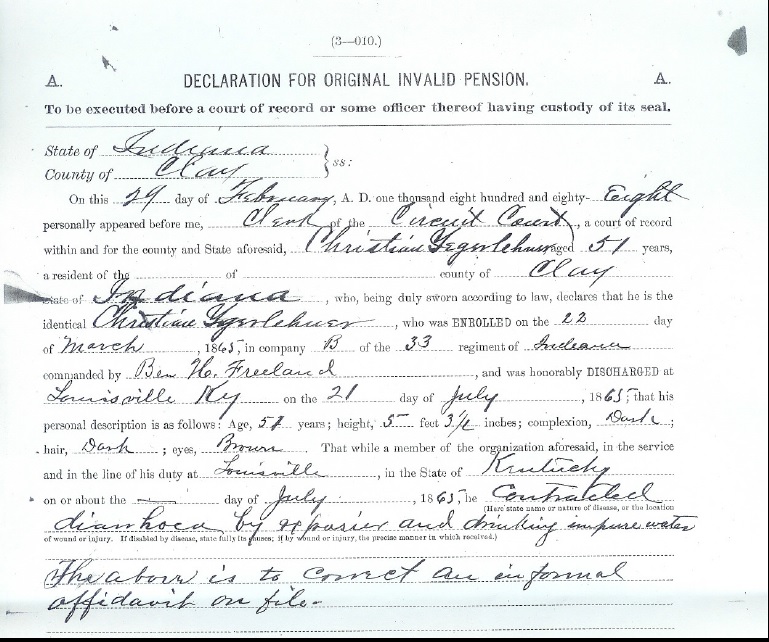 (3—010.)
A. DECLARATION FOR ORIGINAL INVALID PENSION. A.
To be executed before a court of record or some officer thereof having custody of its seal.
State of Indiana
County of Clay } ss:
On this 29 day of February, A. D. one thousand eight hundred and eighty- Eight
personally appeared before me, Clerk of the Circuit Court, a court of record
within and for the county and State aforesaid, Christian aged 51 years,
a resident of the of county of Clay
State of Indiana, who, being duly sworn according to law, declares that he is the
identical Christian, who was ENROLLED on the 22 day
of March, 1865, in company B of the 33 regiment of Indiana
commanded by Ben H. Freeland, and was honorably DISCHARGED at
Louisville Ky on the 21 day of July, 1865; that his
personal description is as follows: Age, years; height, 5 feet 3½ inches; complexion, Dark;
hair, Dark; eyes, Brown. That while a member of the organization aforesaid, in the service
and in the line of his duty at Louisville, in the State of Kentucky
on or about the — day of July, 1865, he Contracted
(Here state name or nature of disease, or the location
diarrhoea by exposier and drinking impure water
of wound or injury. If disabled by disease, state fully its causes; if by wound or injury, the precise manner in which received.)
The above is to correct an informal
affidavit on file-